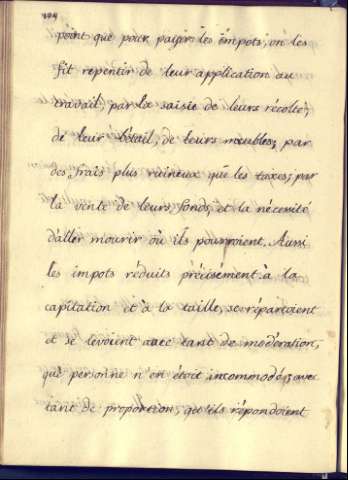 104
point que pour païer les impots, on les
fit repentir de leur application au
travail, par la saisie de leurs récolte,
de leur bétail, de leurs meubles, par
des frais plus ruineux que les taxes; par
la vente de leurs fonds, et la nécessité
d'aller mourir où ils pourroient. Aussi
les impots réduits précisément à la
capitation et à la taille, se répartoient
et se levoient avec tant de modération,
que personne n'en étoit incommodé; avec
tant de proportion, qu'ils répondoient